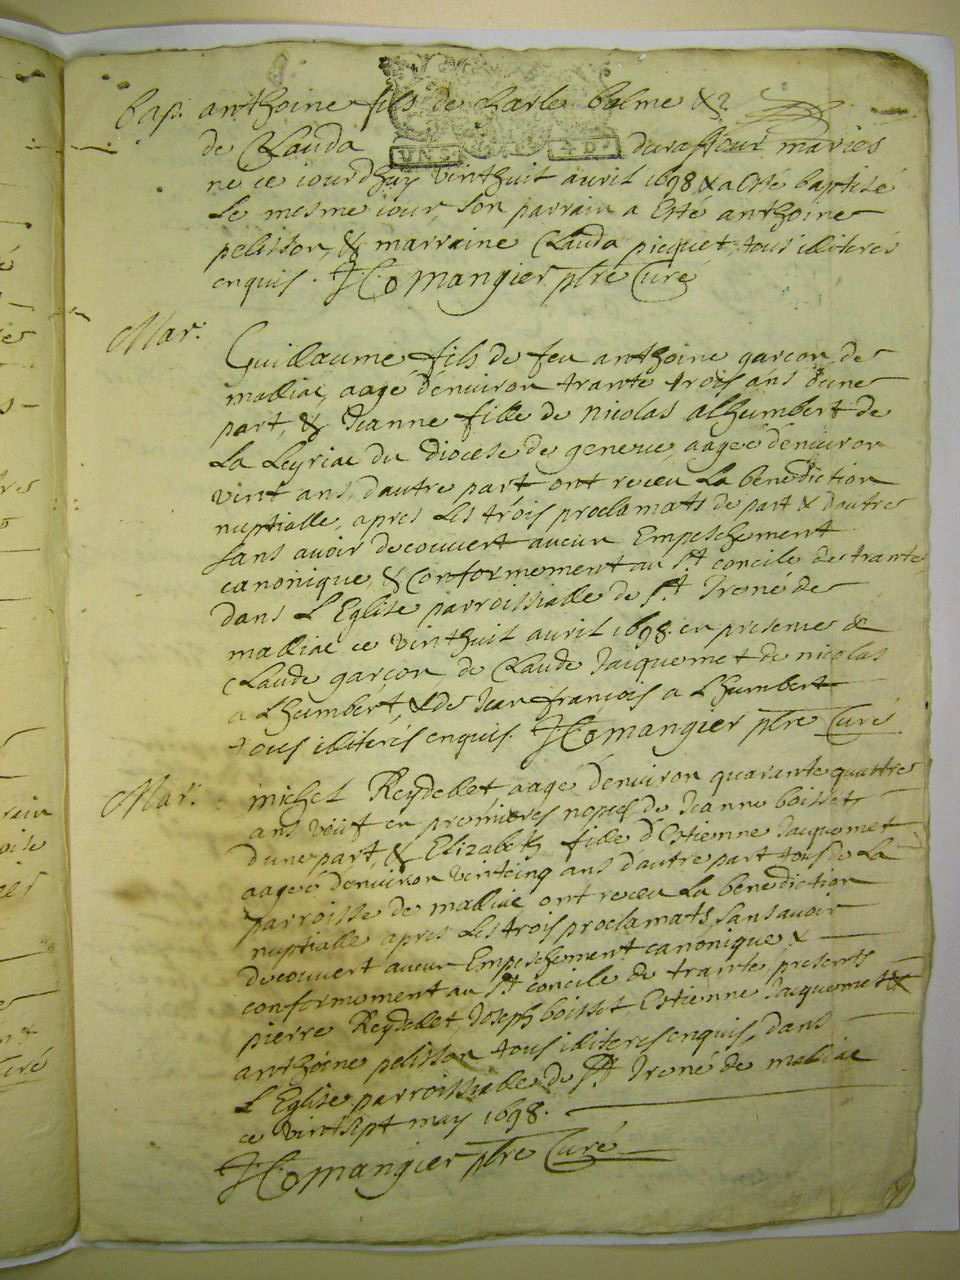 bap. anthoine fils de Charle balme &
de Clauda duraffour mariés
UN S. 4 D.
ne ce iourdhuy vinthuit auril 1698 & a esté baptisé
le mesme iour, son parrain a esté anthoine
pelisson, & marraine Clauda picquet, tous illiterés
enquis. mangier ptre Curé
Mar. Guillaume fils de feu anthoine garçon de
malliac, aagé denuiron trante trois ans dune
part, & Jeanne fille de nicolas alhumbert de
La Leyriac du diocese de geneue, aageé denuiron
vint ans, dautre part ont receu La bénediction
nuptialle, apres Les trois proclamats de part & dautre
sans auoir decouuert aucun Empeschement
canonique, & conformement au st concile de trante
dans L'Eglise parroissialle de st Irené de
malliac ce vinthuit auril 1698. en presence de
Claude garçon de Claude Jacquemet de nicolas
a Lhumbert, & de Jean francois a Lhumbert
tous illiterés enquis. mangier ptre Curé
Mar. michel Reydellet aagé denuiron quarante quattre
ans veuf en premieres nopces de Jeanne boisset
dune part, & Elizabeth fille d'Estienne Jacquemet
aageé denuiron vintcinq ans dautre part tous de La
parroisse de malliac ont receu La bénediction
nuptialle apres Les trois proclamats, sans auoir
decouuert aucun Empeschement canonique &
conformement au st concile de trante, presents
pierre Reydellet, Joseph boisset Estienne Jacquemet &
anthoine pelisson tous illiterés enquis, dans
L'Eglise parroissialle de st Irené de maliac
ce vintsept may 1698.
mangier ptre Curé